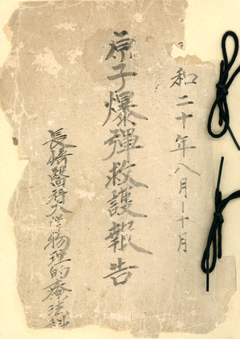 和二十年八月—十月
原子爆彈救護報告
長崎醫科大学物理的療法科